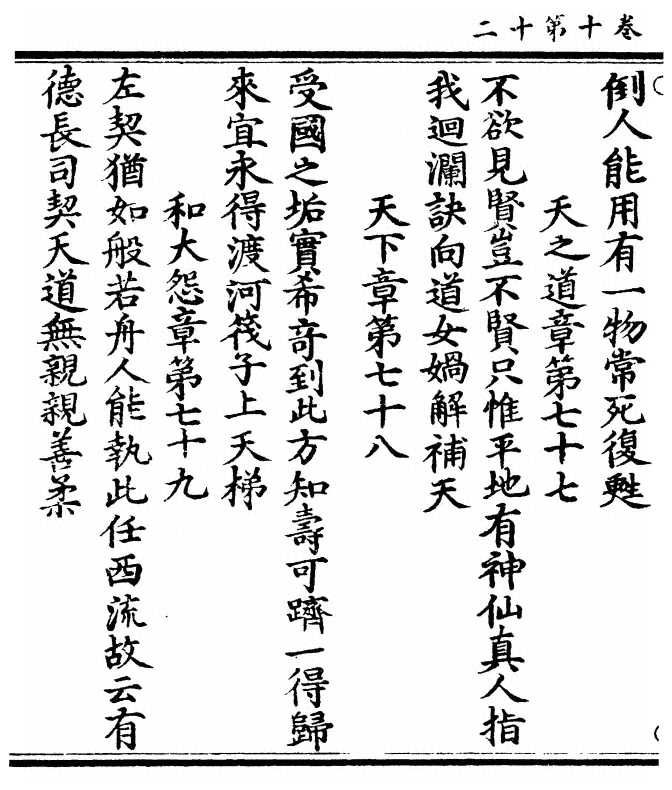 卷十第十二
倒人能用有一物常死復甦
天之道章第七十七
不欲見賢豈不賢只惟平地有神仙真人指
我迴瀾訣向道女媧解補天
天下章第七十八
受國之垢實希奇到此方知壽可躋一得歸
來宜永得渡河筏子上天梯
和大怨章第七十九
左契猶如般若舟人能執此任西流故云有
德長司契天道無親親善柔